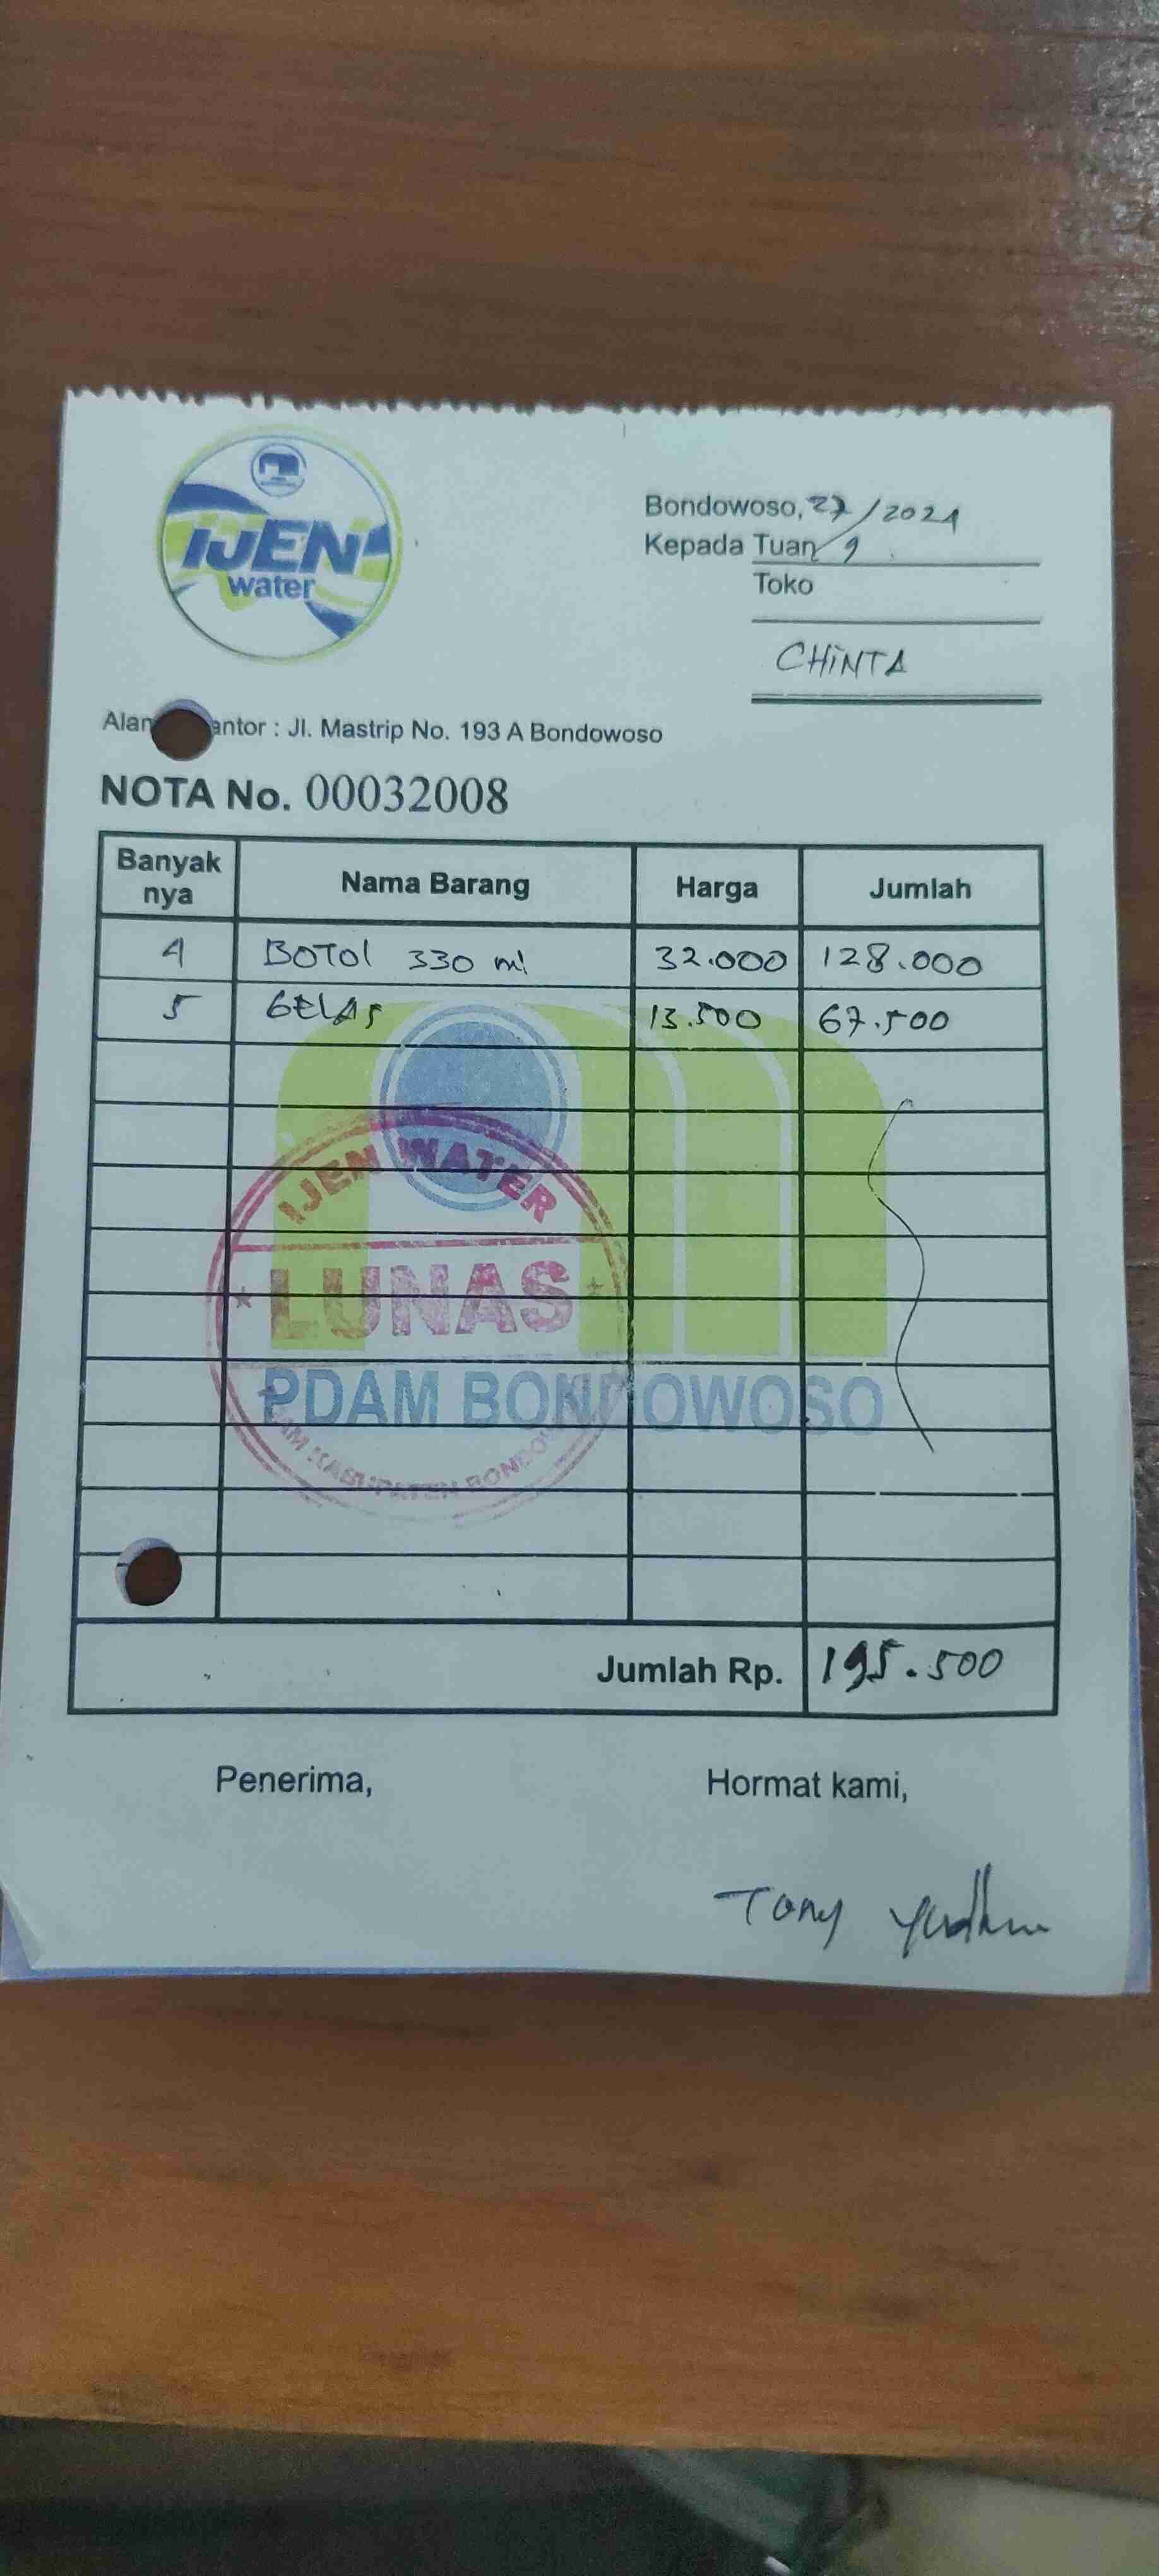 IJEN
water
Bondowoso, 27/9/2024
Kepada Tuan
Toko
CHINTA
Alam antor : Jl. Mastrip No. 193 A Bondowoso
NOTA No. 00032008
Banyak nya Nama Barang Harga Jumlah
4 BOTOl 330 ml 32.000 128.000
5 GELAS 13.500 67.500
IJEN WATER
LUNAS
PDAM BONDOWOSO
KABUPATEN
Jumlah Rp. 195.500
Penerima, Hormat kami,
Tony